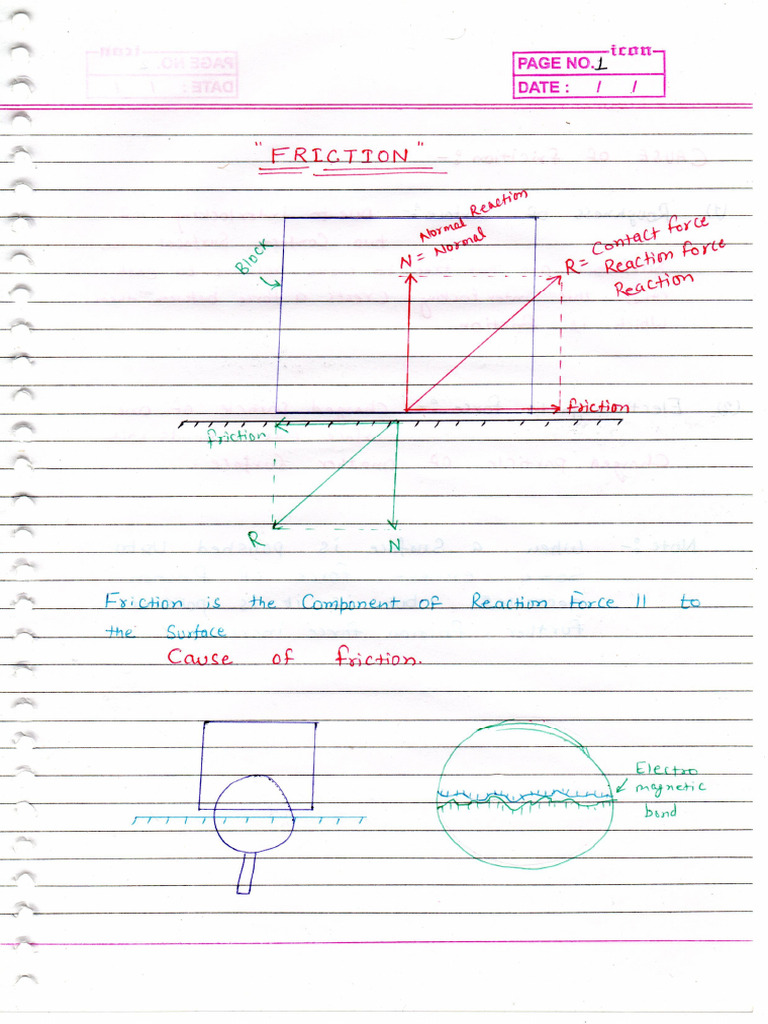 icon
PAGE NO. 1
DATE : / /
"FRICTION"
Block
Normal Reaction
N = Normal
R = Contact force
Reaction force
Reaction
friction
friction
R
N
Friction is the Component of Reaction Force || to
the Surface
Cause of friction.
Electro
magnetic
bond